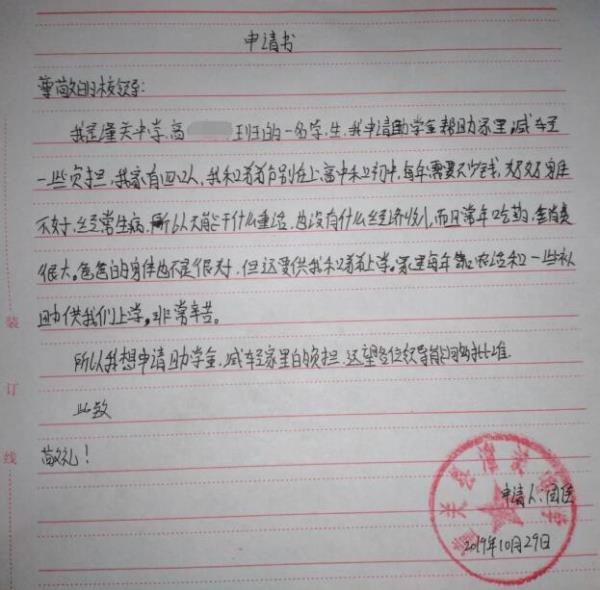 申请书
尊敬的校领导:
我是潼关中学,高 班的一名学生,我申请助学金帮助家里减轻
一些负担,我家有四口人,我和弟弟分别在上高中和初中,每年需要不少钱,妈妈身体
不好,经常生病,所以不能干什么重活,也没有什么经济收入,而且常年吃药,金消费
很大。爸爸的身体也不是很好,但还要供我和弟弟上学。家里每年靠农活和一些补
助供我们上学,非常辛苦。
所以我想申请助学金,减轻家里的负担,还望各位领导能够批准.
此致
敬礼!
装
订
线
申请人:闫
2019年10月29日